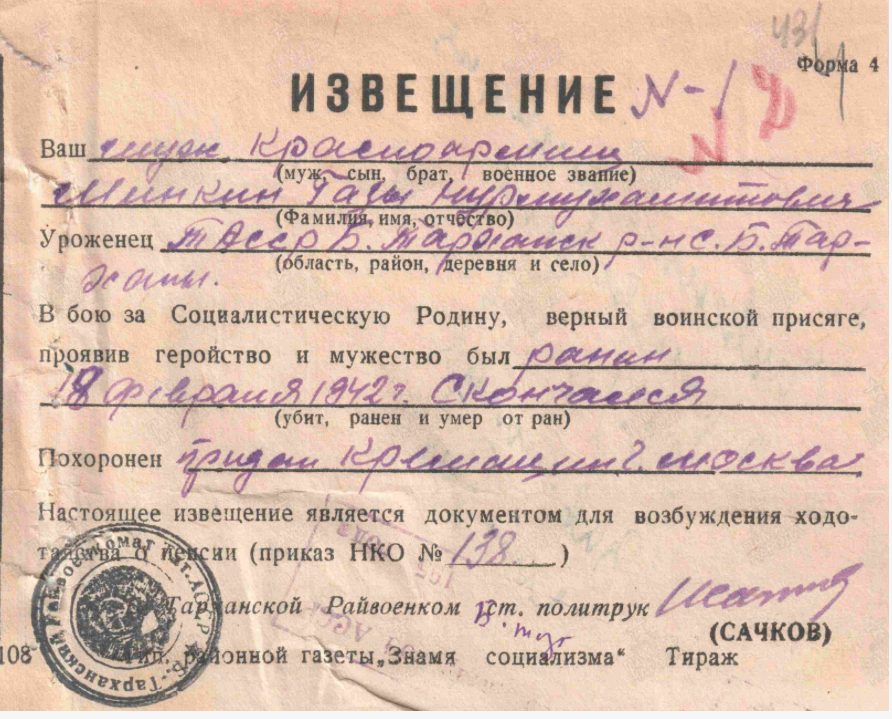 431
Форма 4
ИЗВЕЩЕНИЕ N-1
N 2
Ваш муж красноармеец
(муж, сын, брат, военное звание)
Минкин Газы Нурмухаметович
(Фамилия, имя, отчество)
Уроженец ТАССР Б. Тарханск р-н с. Б. Тар-
(область, район, деревня и село)
ханы.
В бою за Социалистическую Родину, верный воинской присяге,
проявив геройство и мужество был ранин
18 февраля 1942 г. Скончался
(убит, ранен и умер от ран)
Похоронен придан Кремации г. Москва
Настоящее извещение является документом для возбуждения ходо-
тайства о пенсии (приказ НКО № 138 )
Тарханской Райвоенком ст. политрук
(САЧКОВ)
108 Тип. районной газеты „Знамя социализма“ Тираж
Б.-Тарханский Райвоенкомат Тат.АССР